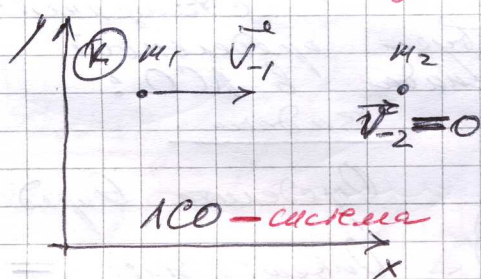 y
K m₁ V⃗₋₁ m₂
V⃗₋₂ = 0
ЛСО – система
x